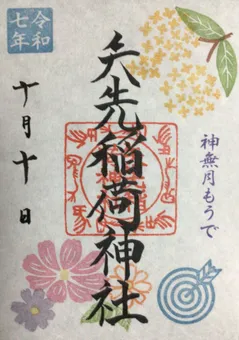 令和七年
十月十日
矢先稲荷神社
神無月もうで